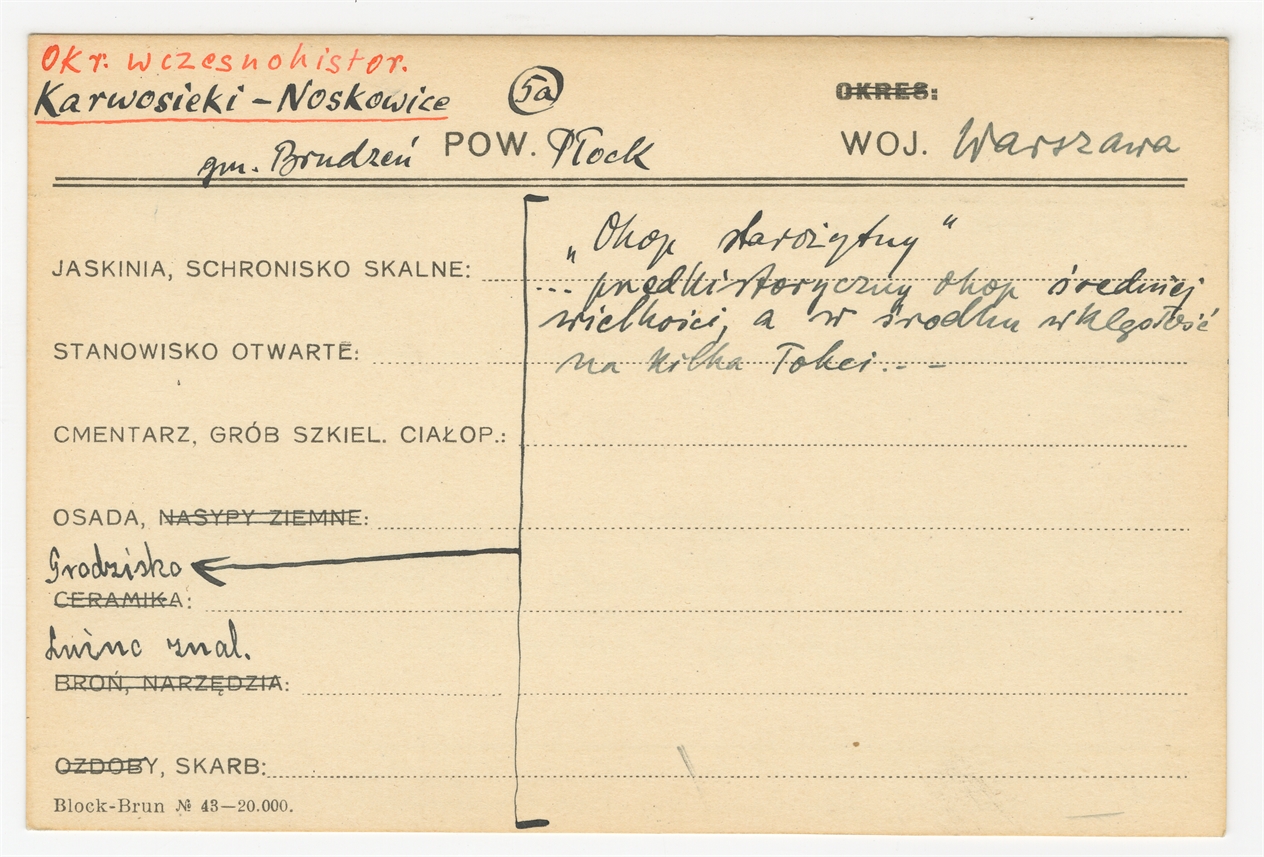 Okr. wczesnohistor.
Karwosieki - Noskowice
5a
OKRES:
gm. Brudzeń POW. Płock WOJ. Warszawa
„Okop starożytny"
JASKINIA, SCHRONISKO SKALNE:
... predhistoryczny okop średniej
wielkości, a w środku wklęsłość
STANOWISKO OTWARTE:
na kilka łokci. - -
CMENTARZ, GRÓB SZKIEL. CIAŁOP.:
OSADA, NASYPY ZIEMNE:
Grodzisko
CERAMIKA:
Luźne znal.
BROŃ, NARZĘDZIA:
OZDOBY, SKARB:
Block-Brun № 43—20.000.